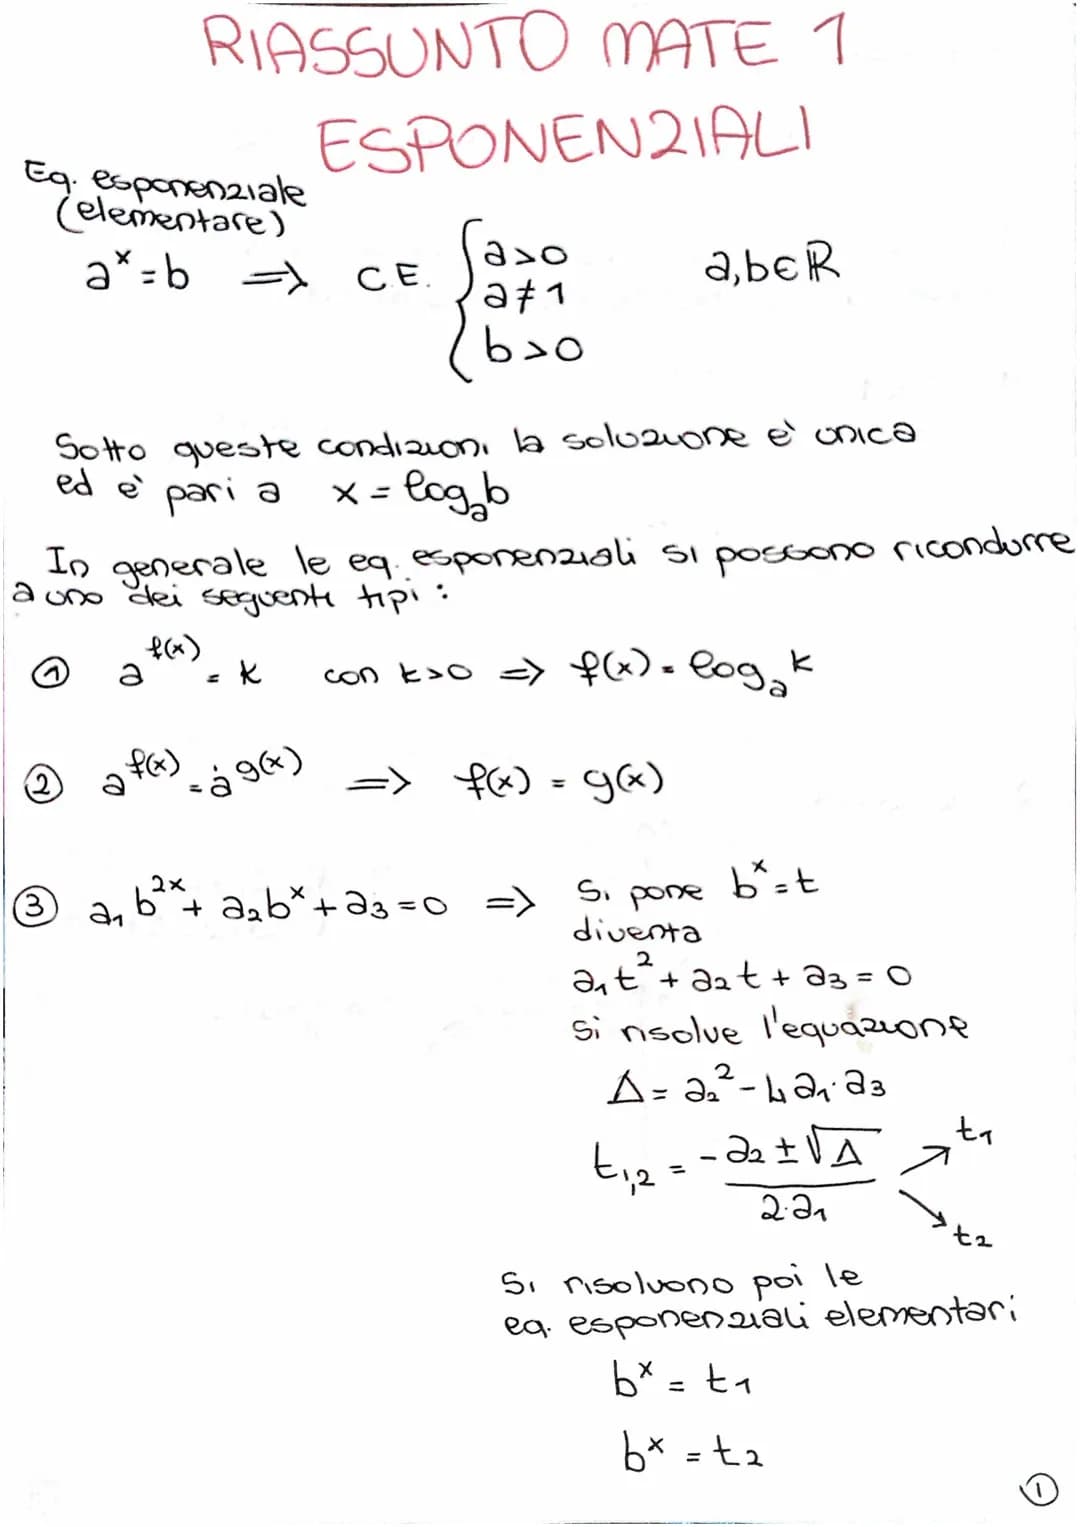 RIASSUNTO MATE 1
ESPONENZIALI
Eq. esponenziale
(elementare)
a^x = b => C.E. { a>0 a≠1 b>0 a,b∈ℝ
Sotto queste condizioni la soluzione è unica
ed è pari a x = log_a b
In generale le eq. esponenziali si possono ricondurre
a uno dei seguenti tipi :
① a^f(x) = k con k>0 => f(x) = log_a k
② a^f(x) = a^g(x) => f(x) = g(x)
③ a₁b^2x + a₂b^x + a₃ = 0 => Si pone b^x = t
diventa
a₁t² + a₂t + a₃ = 0
Si risolve l'equazione
Δ = a₂² - 4a₁·a₃
t₁,₂ = (-a₂ ± √Δ) / (2·a₁) ↗ t₁ ↘ t₂
Si risolvono poi le
eq. esponenziali elementari
b^x = t₁
b^x = t₂
①